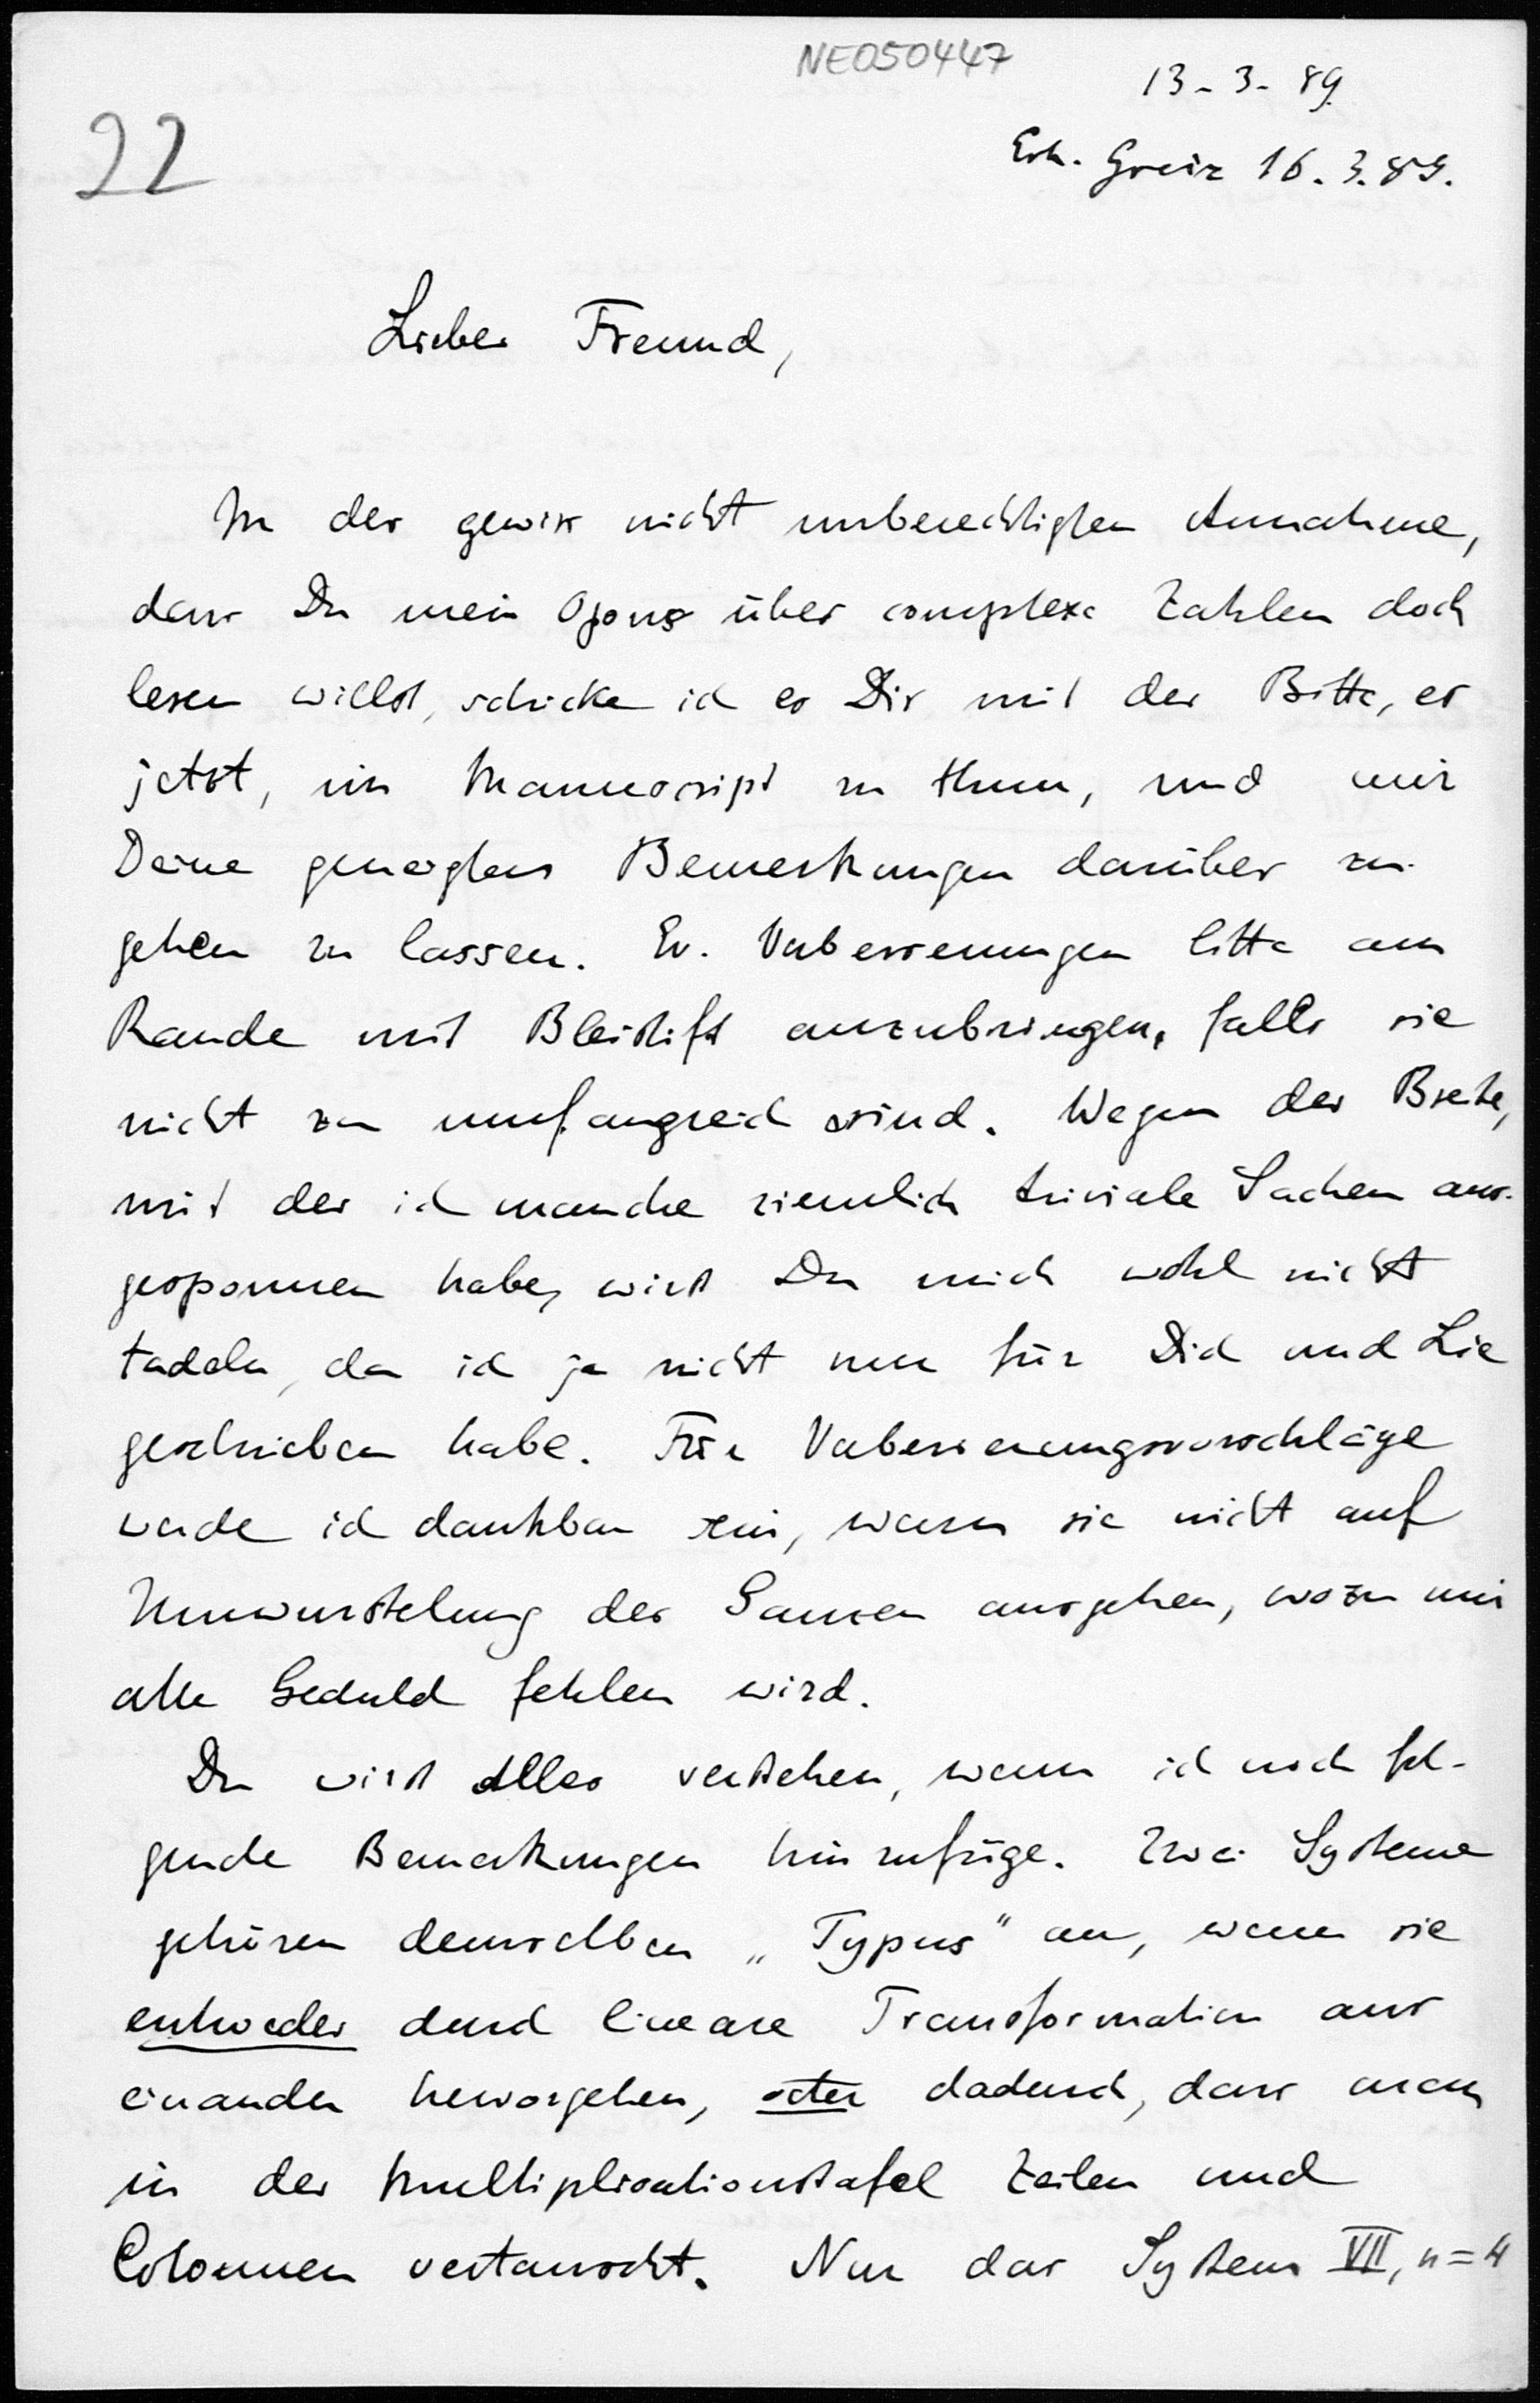 NE050447
13-3-89.
22
Erh. Greiz 16.3.89.
Lieber Freund,
In der gewiss nicht unberechtigten Annahme,
dass Du mein Opus über complexe Zahlen doch
lesen willst, schicke ich es Dir mit der Bitte, es
jetzt, im Manuscript zu thun, und mir
Deine geneigten Bemerkungen darüber zu-
gehen zu lassen. Ev. Verbesserungen bitte am
Rande mit Bleistift anzubringen, falls sie
nicht zu umfangreich sind. Wegen der Breite,
mit der ich manche ziemlich triviale Sachen aus-
gesponnen habe, wirst Du mich wohl nicht
tadeln, da ich ja nicht nur für Dich und Lie
geschrieben habe. Für Verbesserungsvorschläge
werde ich dankbar sein, wenn sie nicht auf
Umwurstelung des Ganzen ausgehen, wozu mir
alle Geduld fehlen wird.
Du wirst Alles verstehen, wenn ich noch fol-
gende Bemerkungen hinzufüge. Zwei Systeme
gehören demselben „Typus" an, wenn sie
entweder durch lineare Transformation aus
einander hervorgehen, oder dadurch, dass man
in der Multiplicationstafel Zeilen und
Colonnen vertauscht. Nur das System VII, n=4